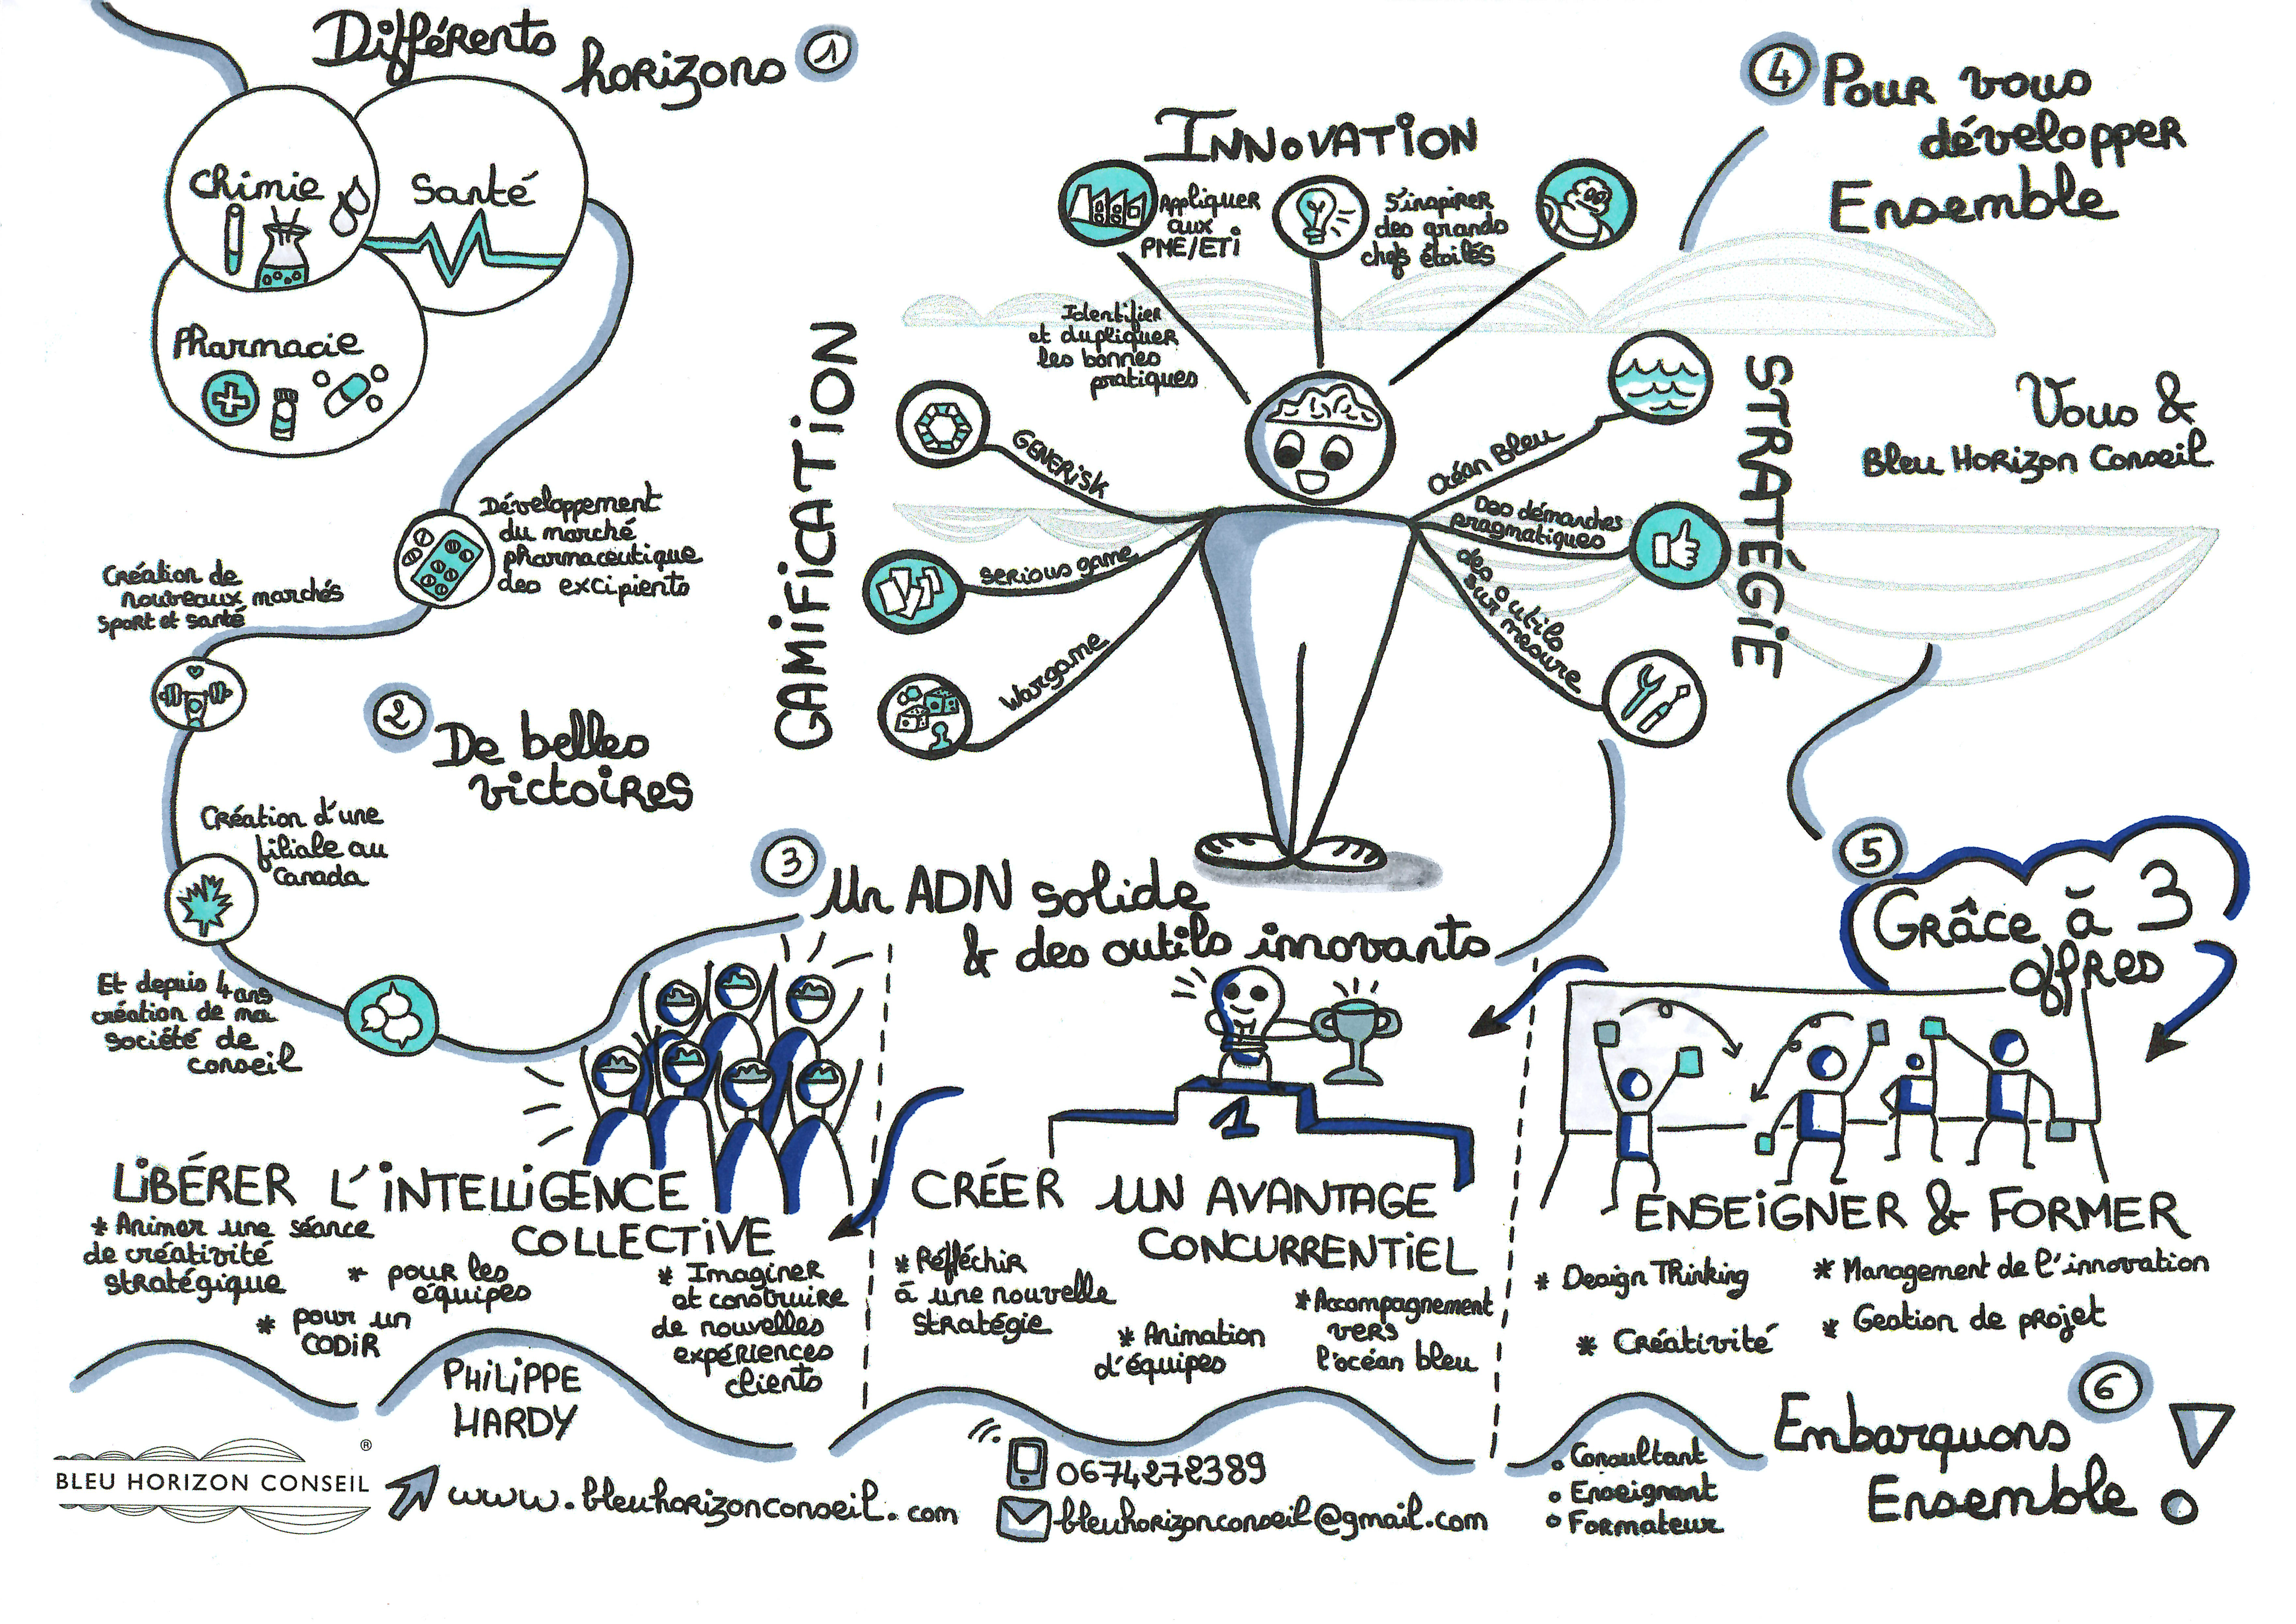 Différents
horizons
1
Chimie
Santé
Pharmacie
Développement
du marché
pharmaceutique
des excipients
Création de
nouveaux marchés
sport et santé
2
De belles
victoires
Création d'une
filiale au
Canada
Et depuis 4 ans
création de ma
société de
conseil
3
Un ADN solide
& des outils innovants
INNOVATION
Appliquer
aux
PME/ETI
S'inspirer
des grands
chefs étoilés
Identifier
et dupliquer
les bonnes
pratiques
GAMIFICATION
GENERISK
serious game
Wargame
STRATÉGIE
Océan Bleu
Des démarches
pragmatiques
des outils
sur mesure
4
Pour vous
développer
Ensemble
Vous &
Bleu Horizon Conseil
5
Grâce à 3
offres
LIBÉRER L'INTELLIGENCE
COLLECTIVE
* Animer une séance
de créativité
stratégique
* pour les
équipes
* pour un
CODIR
* Imaginer
et construire
de nouvelles
expériences
clients
1
CRÉER UN AVANTAGE
CONCURRENTIEL
* Réfléchir
à une nouvelle
stratégie
* Animation
d'équipes
* Accompagnement
vers
l'océan bleu
ENSEIGNER & FORMER
* Design Thinking
* Management de l'innovation
* Créativité
* Gestion de projet
6
Embarquons
Ensemble
PHILIPPE
HARDY
BLEU HORIZON CONSEIL
®
www.bleuhorizonconseil.com
0674272389
bleuhorizonconseil@gmail.com
Consultant
Enseignant
Formateur